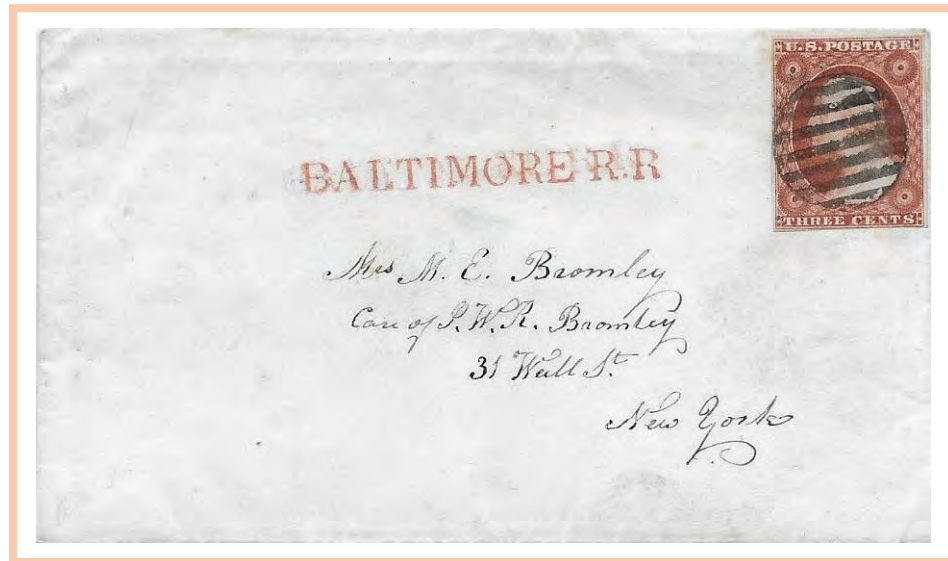 U.S. POSTAGE
THREE CENTS
BALTIMORE R.R
Mrs M. E. Bromley
Care of P. W. R. Bromley
31 Wall St.
New York